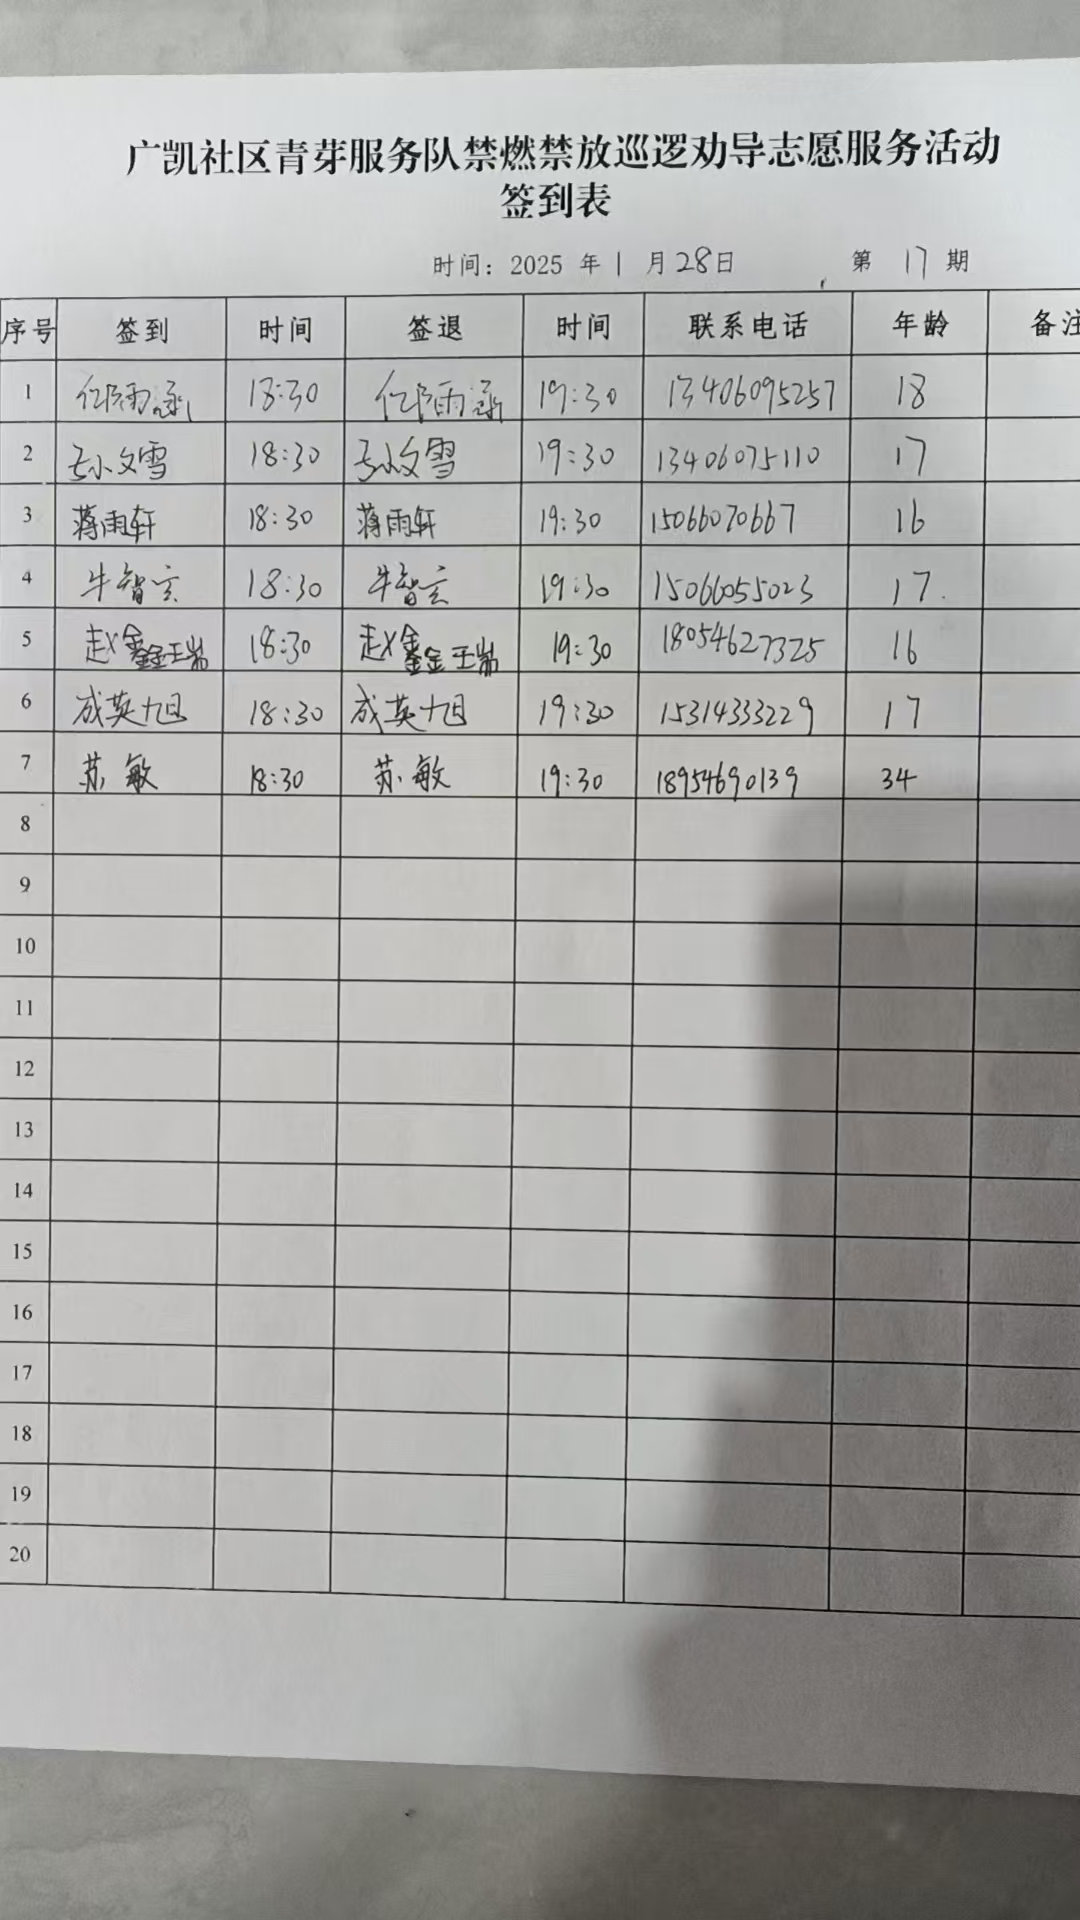 广凯社区青芽服务队禁燃禁放巡逻劝导志愿服务活动
签到表
时间：2025 年 1 月 28日 第 17 期
序号 签到 时间 签退 时间 联系电话 年龄 备注
1 雨涵 18:30 雨涵 19:30 13406095257 18
2 孙文雪 18:30 孙文雪 19:30 13406075110 17
3 蒋雨轩 18:30 蒋雨轩 19:30 15066070667 16
4 牛智玄 18:30 牛智玄 19:30 15066055023 17.
5 赵鑫 18:30 赵鑫 19:30 18054627325 16
6 成英旭 18:30 成英旭 19:30 15314333229 17
7 苏敏 18:30 苏敏 19:30 18954690139 34
8
9
10
11
12
13
14
15
16
17
18
19
20